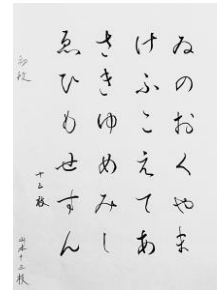 ゐのおくやま
けふこえてあ
さきゆめみし
ゑひもせすん
十三枝
山本十三枝